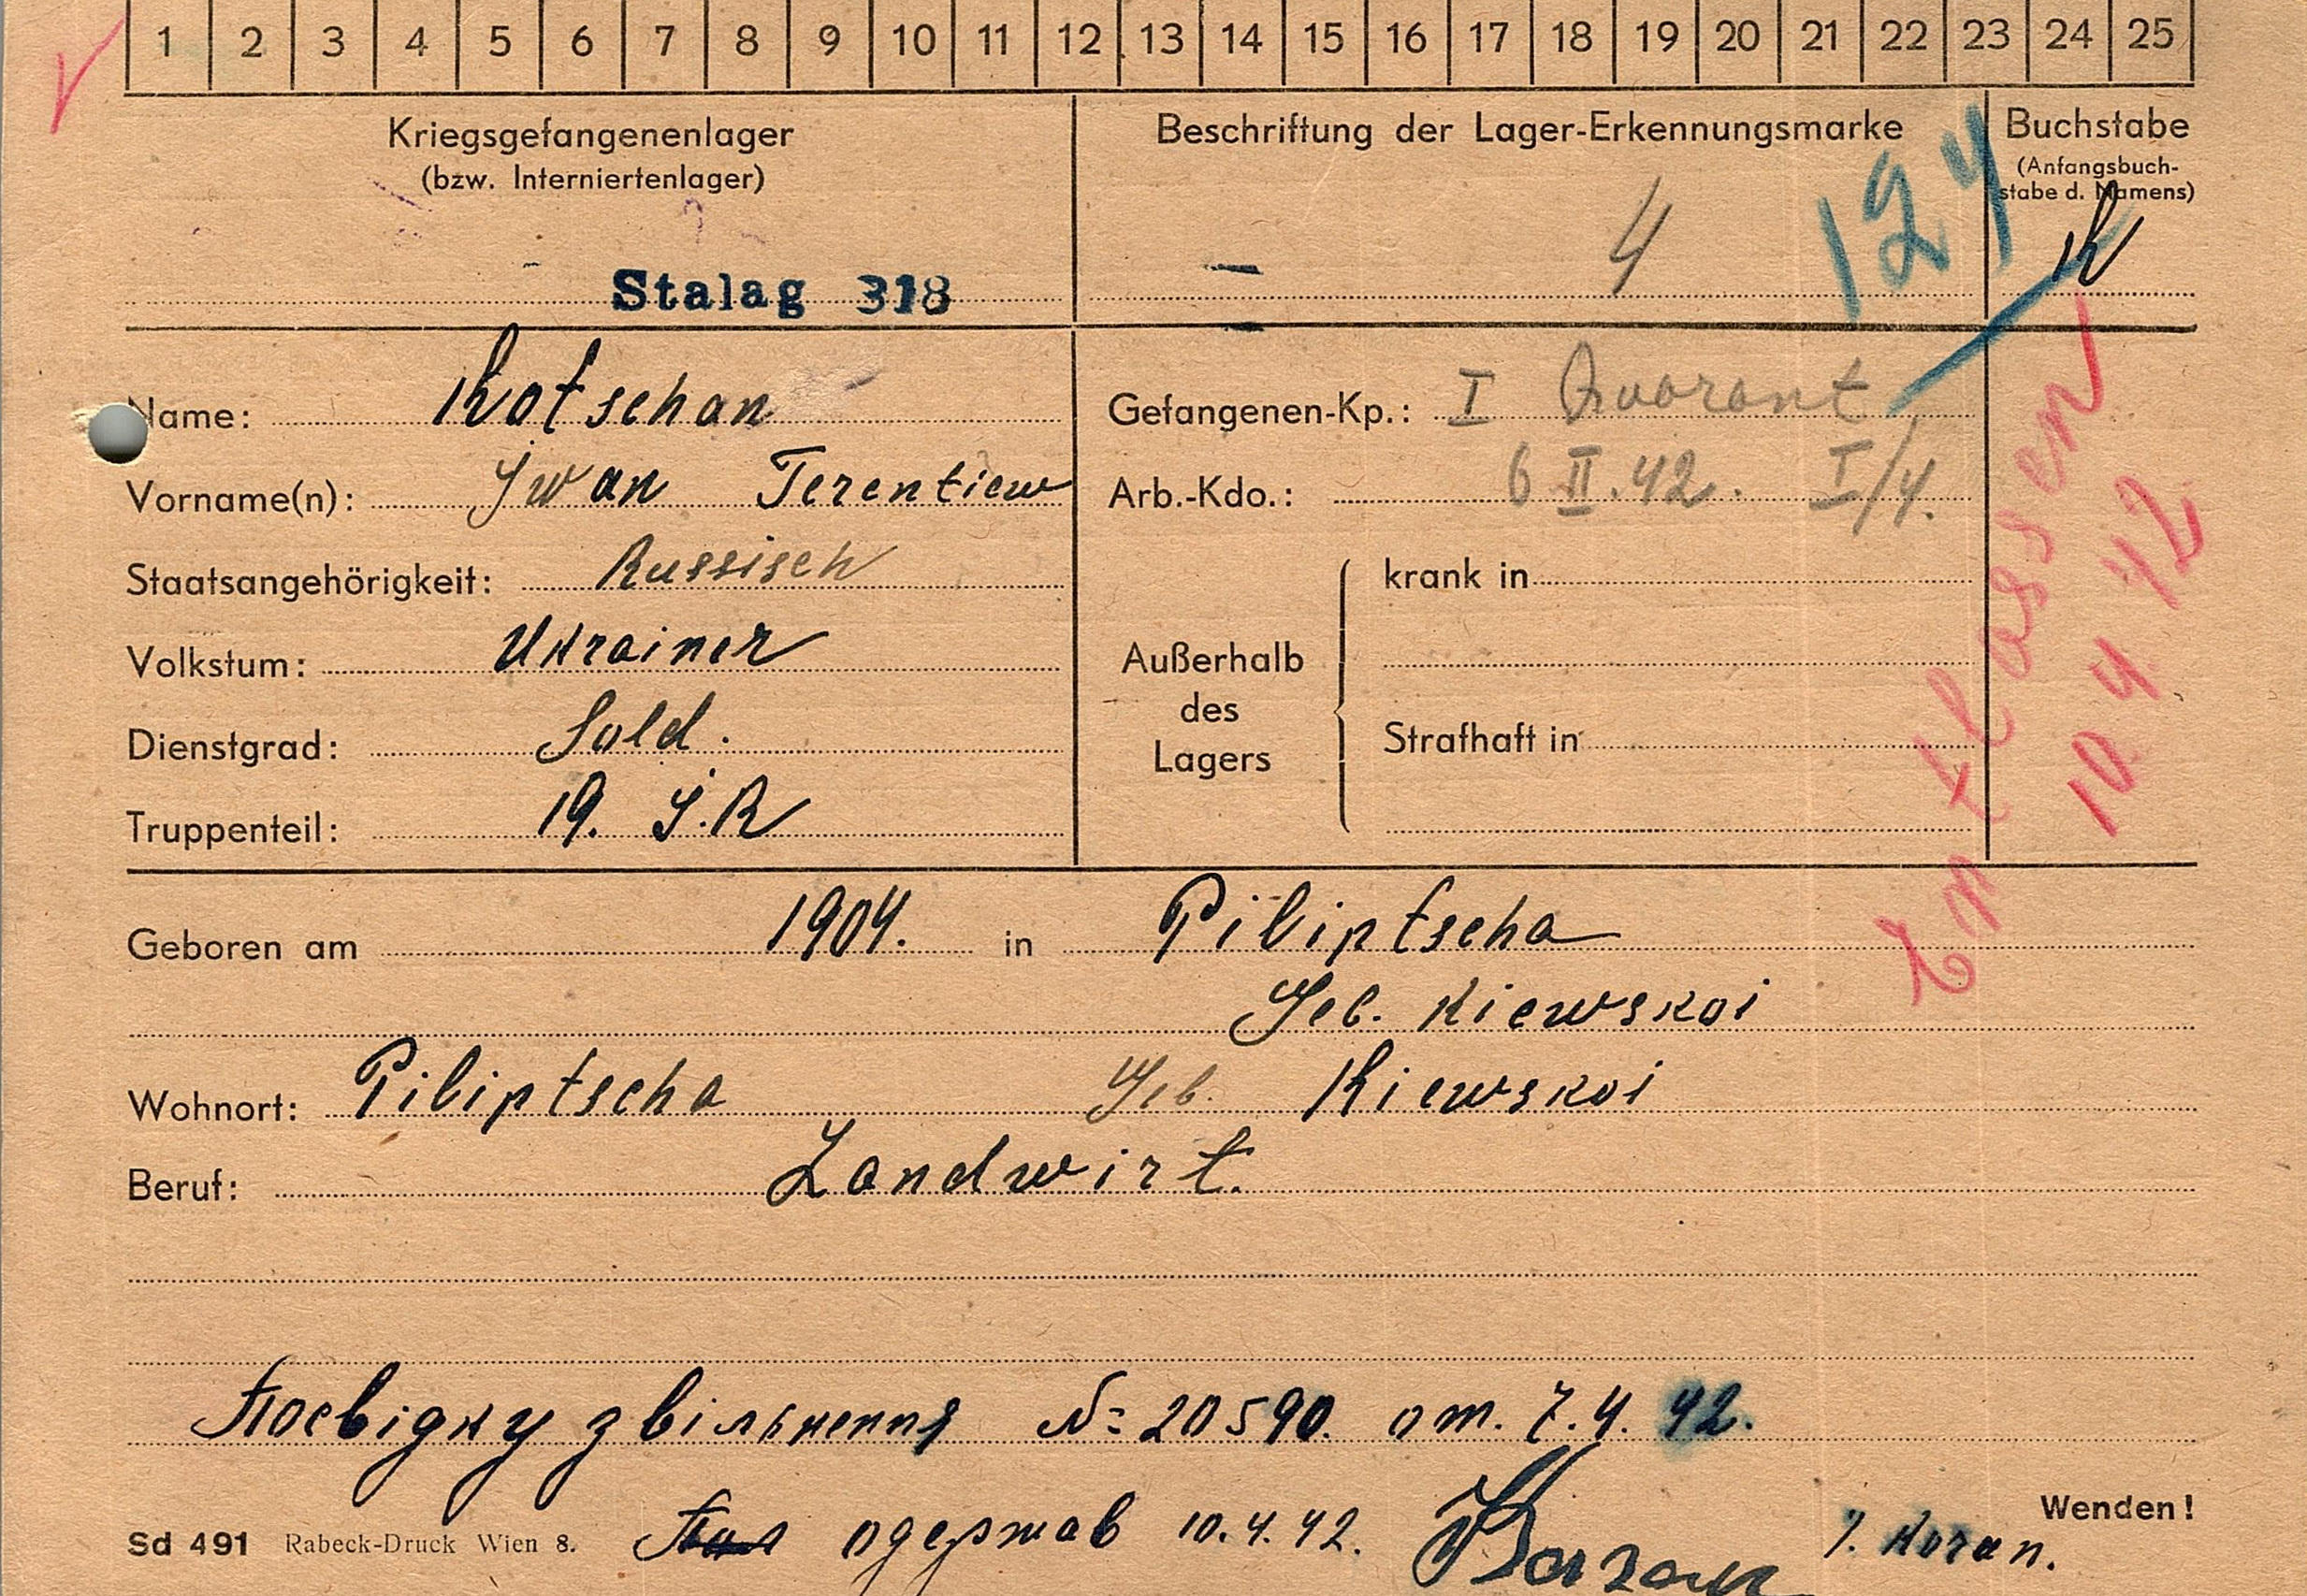 1 2 3 4 5 6 7 8 9 10 11 12 13 14 15 16 17 18 19 20 21 22 23 24 25
Kriegsgefangenenlager
(bzw. Interniertenlager)
Stalag 318
Beschriftung der Lager-Erkennungsmarke
4 124
Buchstabe
(Anfangsbuch-
stabe d. Namens)
K
Name: Kotschan
Vorname(n): Iwan Terentiew
Staatsangehörigkeit: Russisch
Volkstum: Ukrainer
Dienstgrad: Sold.
Truppenteil: 19. I.R
Gefangenen-Kp.: I
Arb.-Kdo.: 6 II.42. I/4.
Außerhalb
des
Lagers
krank in
Strafhaft in
Entlassen
10 4 42
Geboren am 1904. in Piliptscha
Geb. Kiewskoi
Wohnort: Piliptscha Geb. Kiewskoi
Beruf: Landwirt.
Посвідку звільнення № 20590. от. 7.4.42.
одержав 10.4.42.
Wenden!
Sd 491 Rabeck-Druck Wien 8.